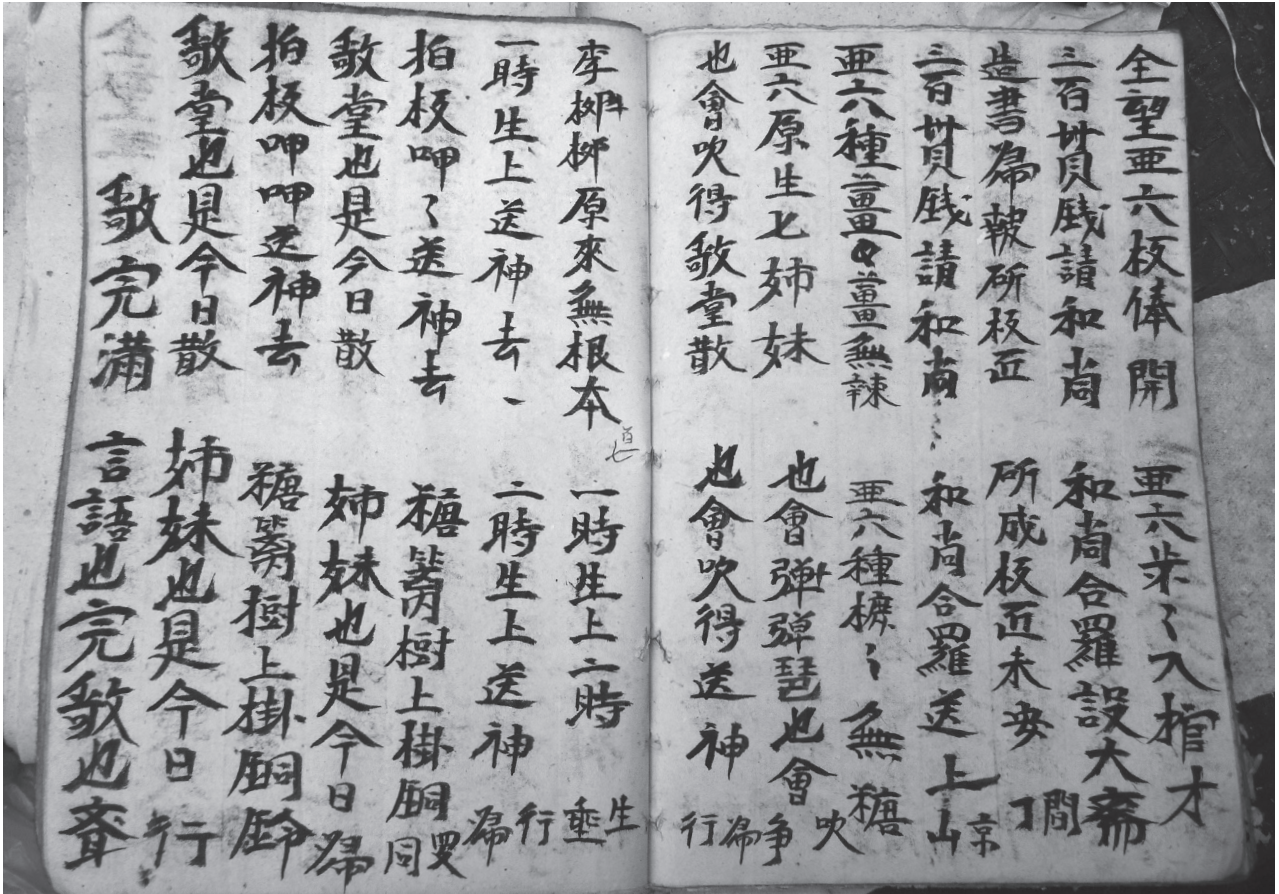 全望亜六板俸開 亜六步〻入棺才
三百卅貫銭請和尚 和尚合羅設大斋
造書㷌報斫板匠 斫成板匠未安丁間
三百卅貫銭請和尚〻〻 和尚合羅送上山京
亜六種薑〻薑無辣 亜六種榇〻無糖
亜六原生七姉妹 也會弹弹琶也會吹争
也會吹得敬堂散 也會吹得送神㷌行
李柳柳原來無根本 一時生上二時生垂
一時生上送神去 二時生上送神行㷌
拍板呷〻送神去 糖蒭樹上掛銅同罗
敬堂也是今日散 姉妹也是今日㷌
拍板呷呷送神去 糖蒭樹上掛銅鈴
敬堂也是今日散 姉妹也是今日行
敬完满 言語也完敬也斉